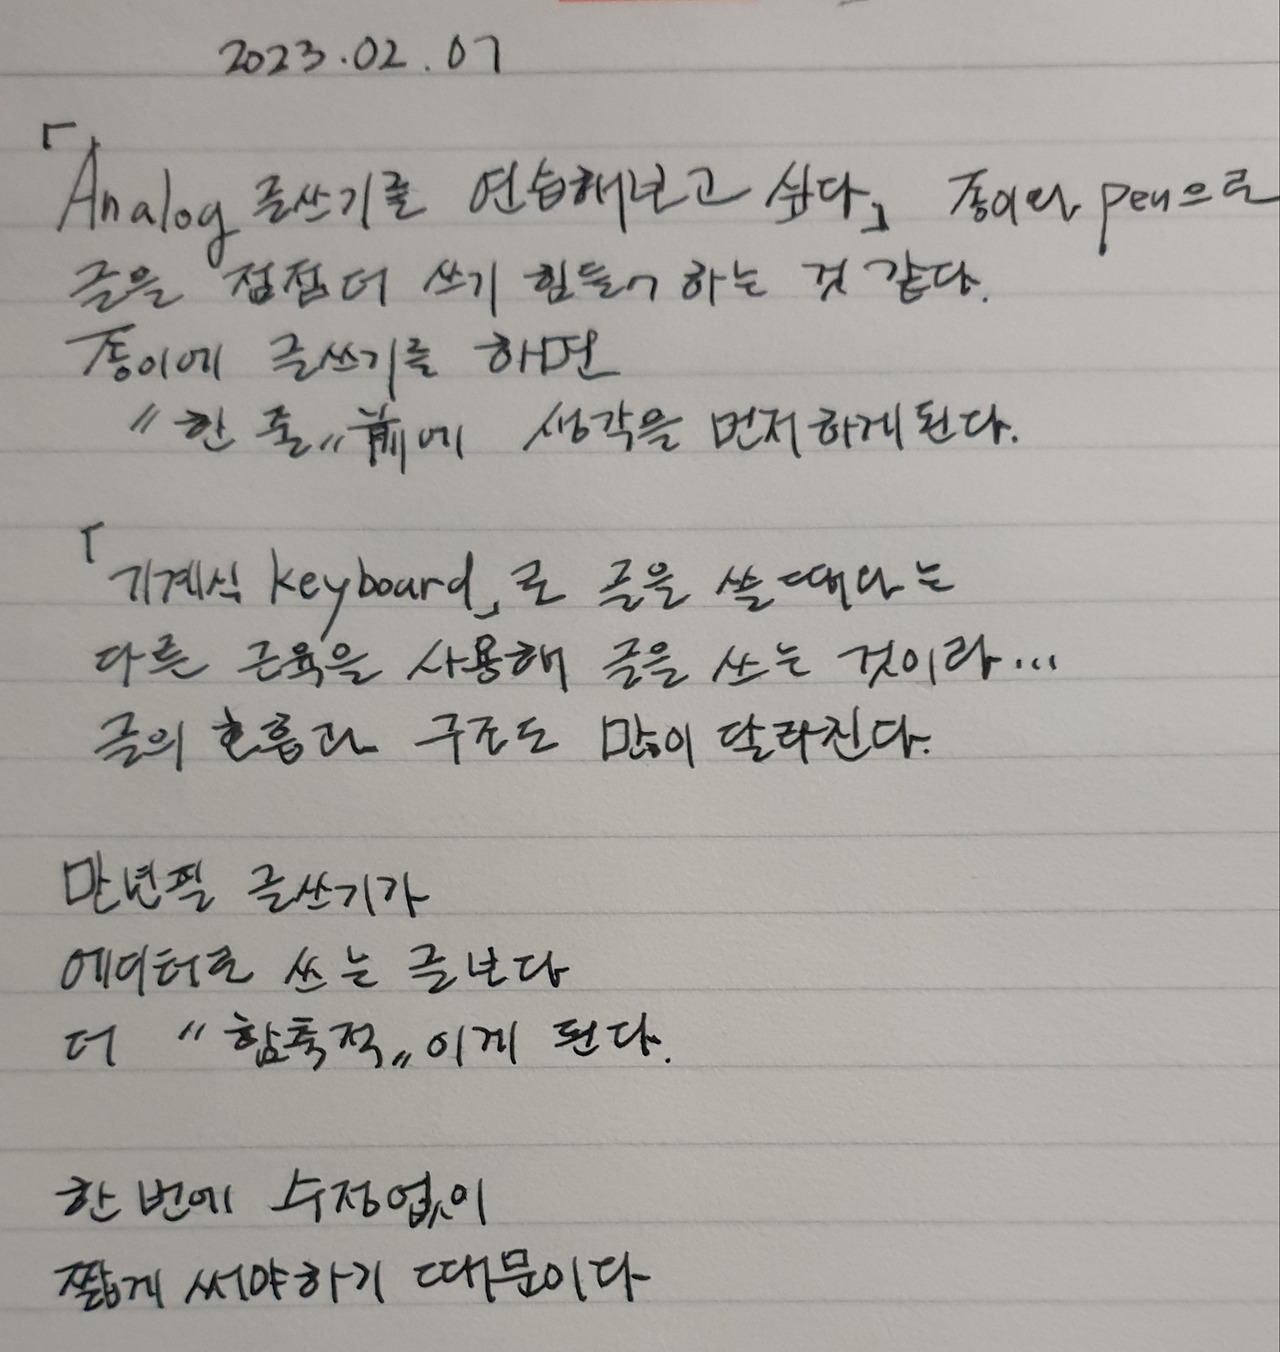 2023.02.07
「Analog 글쓰기를 연습해보고 싶다」 종이와 pen으로
글을 점점 더 쓰기 힘들어 하는 것 같다.
종이에 글쓰기를 하면
"한 줄" 前에 생각을 먼저하게된다.
「기계식 keyboard」로 글을 쓸때와는
다른 근육을 사용해 글을 쓰는 것이라...
글의 호흡과 구조도 많이 달라진다.
만년필 글쓰기가
에디터로 쓰는 글보다
더 "함축적"이게 된다.
한 번에 수정없이
짧게 써야하기 때문이다